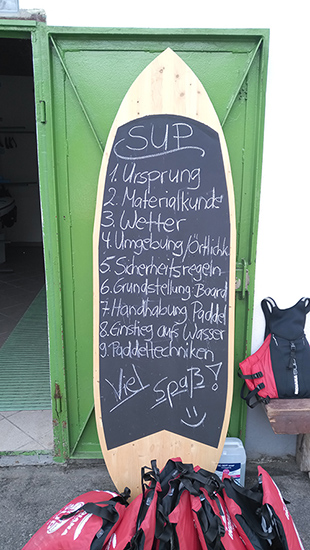 SUP
1. Ursprung
2. Materialkunde
3. Wetter
4. Umgebung/Örtlichk
5. Sicherheitsregeln
6. Grundstellung: Board
7. Handhabung Paddel
8. Einstieg aufs Wasser
9. Paddeltechniken
Viel Spaß!